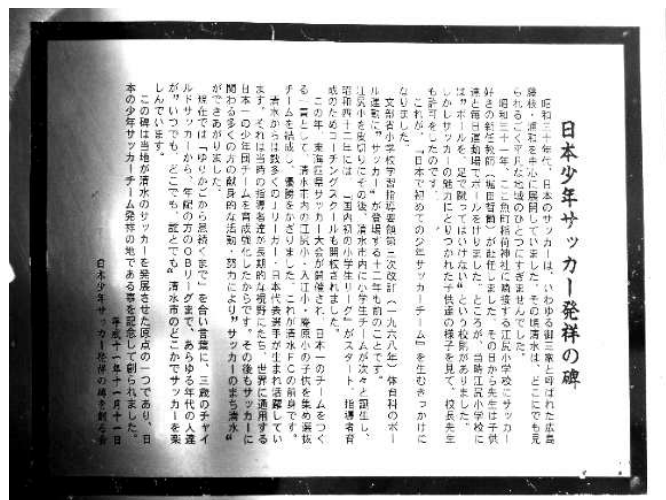 日本少年サッカー発祥の碑
昭和三十年代、日本のサッカーは、いわゆる御三家と呼ばれた広島
藤枝・浦和を中心に展開していました。その頃清水は、どこにでも見
られるごく平凡な地域のひとつにすぎませんでした。
昭和三十一年、ここ魚町稲荷神社に隣接する江尻小学校にサッカー
好きの新任教師（堀田哲爾）が赴任しました。その日から先生は子供
達と毎日運動場でボールをけりました。ところが、当時江尻小学校に
は“ボールを、足で蹴ってはいけない”という校則がありました。
しかしサッカーの魅力にとりつかれた子供達の様子を見て、校長先生
も許可をしたのです。
これが、『日本で初めての少年サッカーチーム』を生むきっかけに
なりました。
文部省小学校学習指導要領第三次改訂（一九六八年）体育科のボー
ル運動に、“サッカー”が登場する十二年も前のことです。
江尻小を皮切りにその後、清水市内に小学生チームが次々と誕生し、
昭和四十二年には、「国内初の小学生リーグ」がスタート、指導者育
成のためコーチングスクールも開校されました。
この年、東海四県サッカー大会が開催され、日本一のチームをつく
る一環として、清水市内の江尻小・入江小・庵原小の子供を集め選抜
チームを結成し、優勝をかざりました。これが清水ＦＣの前身です。
清水からは数多くのＪリーガー・日本代表選手が生まれ活躍してい
ます。それは当時の指導者達が長期的な視野にたち、世界に通用する
日本一の少年団チームを育成強化したからです。その後もサッカーに
関わる多くの方の献身的な活動・努力により“サッカーのまち清水”
ができあがりました。
現在では「ゆりかごから息続くまで」を合い言葉に、三歳のチャイ
ルドサッカーから、年配の方のＯＢリーグまで、あらゆる年代の人達
が“いつでも、どこでも、誰とでも”清水市のどこかでサッカーを楽
しんでいます。
この碑は当地が清水のサッカーを発展させた原点の一つであり、日
本の少年サッカーチーム発祥の地である事を記念して創られました。
平成十一年十一月十一日
日本少年サッカー発祥の碑を創る会